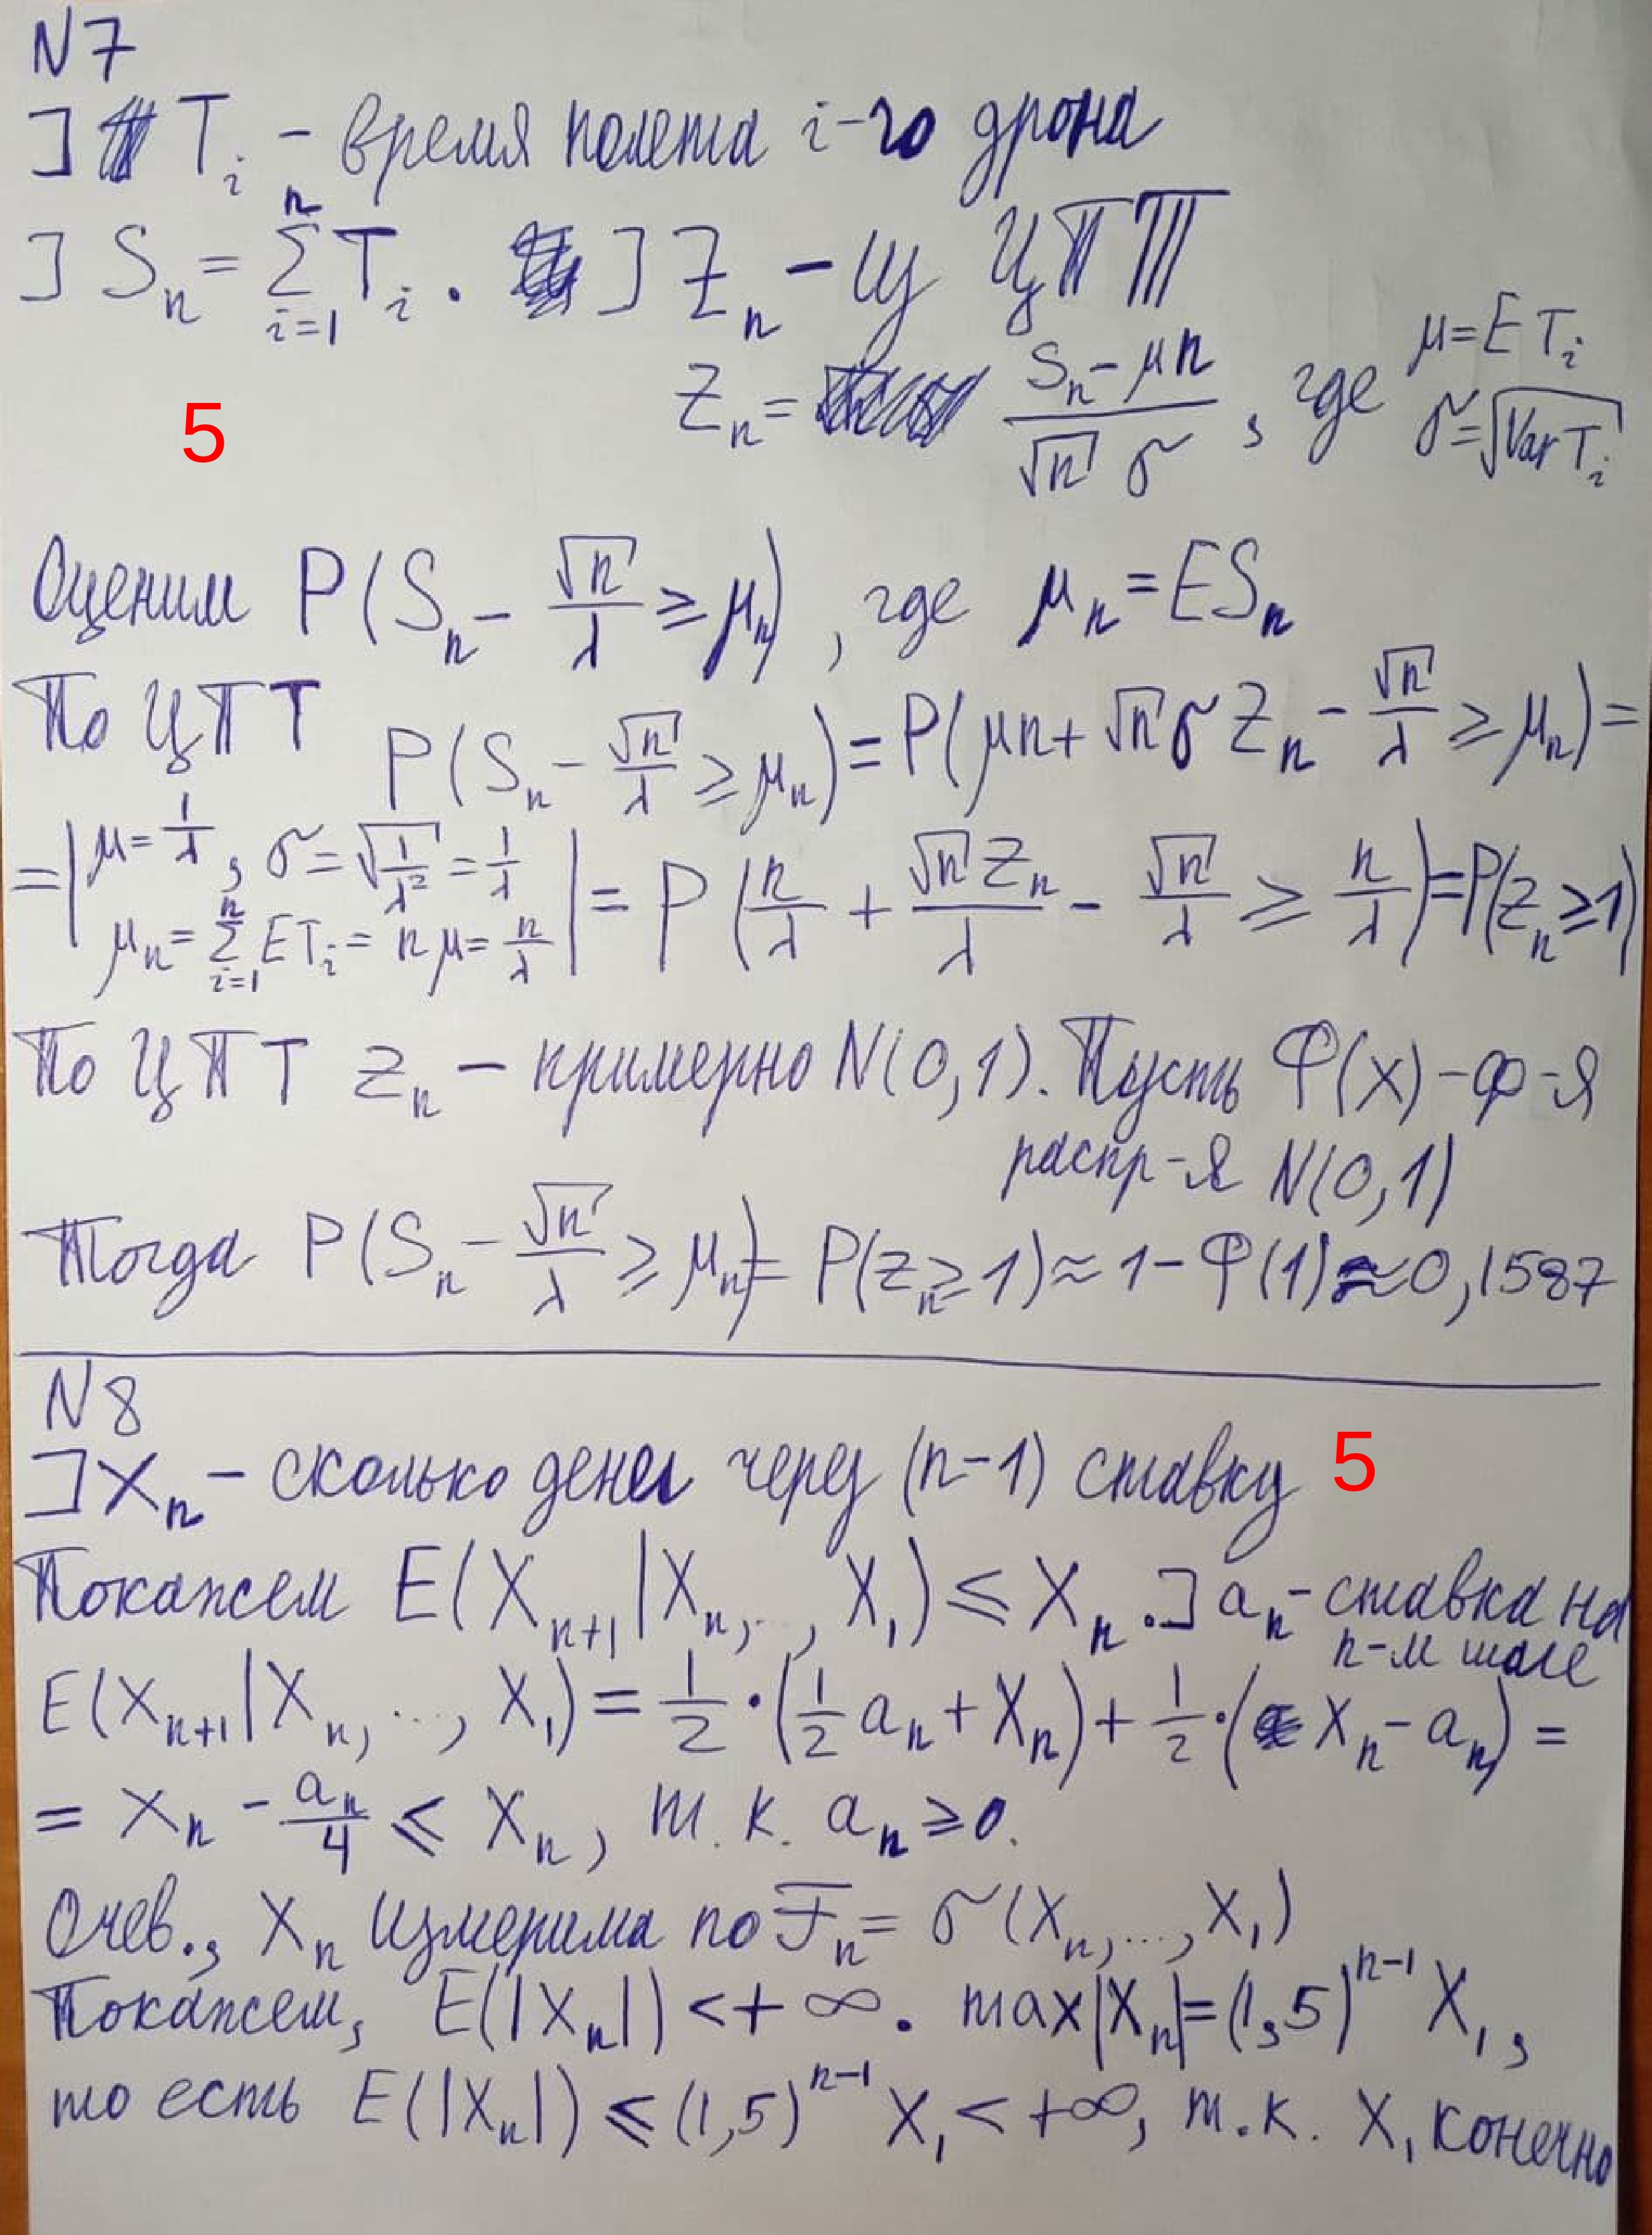 N7
] T_i - время полета i-го дрона
] S_n = \sum_{i=1}^{n} T_i. ] Z_n - из ЦПТ
Z_n = \frac{S_n - μn}{\sqrt{n} σ}, где μ = E T_i
σ = \sqrt{Var T_i}
5
Оценим P(S_n - \frac{\sqrt{n}}{λ} ≥ μ_n), где μ_n = ES_n
По ЦПТ P(S_n - \frac{\sqrt{n}}{λ} ≥ μ_n) = P(μn + \sqrt{n} σ Z_n - \frac{\sqrt{n}}{λ} ≥ μ_n) =
= | μ = \frac{1}{λ}, σ = \sqrt{\frac{1}{λ^2}} = \frac{1}{λ}
μ_n = \sum_{i=1}^{n} E T_i = nμ = \frac{n}{λ} | = P(\frac{n}{λ} + \frac{\sqrt{n} Z_n}{λ} - \frac{\sqrt{n}}{λ} ≥ \frac{n}{λ}) = P(Z_n ≥ 1)
По ЦПТ Z_n - примерно N(0,1). Пусть Φ(x) - ф-я
распр-я N(0,1)
Тогда P(S_n - \frac{\sqrt{n}}{λ} ≥ μ_n) = P(Z_n ≥ 1) ≈ 1 - Φ(1) ≈ 0,1587
N8
] X_n - сколько денег через (n-1) ставку 5
Покажем E(X_{n+1} | X_n, ..., X_1) ≤ X_n. ] a_n - ставка на
n-м шаге
E(X_{n+1} | X_n, ..., X_1) = \frac{1}{2} · (\frac{1}{2} a_n + X_n) + \frac{1}{2} · (X_n - a_n) =
= X_n - \frac{a_n}{4} ≤ X_n, т.к. a_n ≥ 0.
Очев., X_n измерима по F_n = σ(X_n, ..., X_1)
Покажем, E(|X_n|) < +∞. max|X_n| = (1,5)^{n-1} X_1,
то есть E(|X_n|) ≤ (1,5)^{n-1} X_1 < +∞, т.к. X_1 конечно